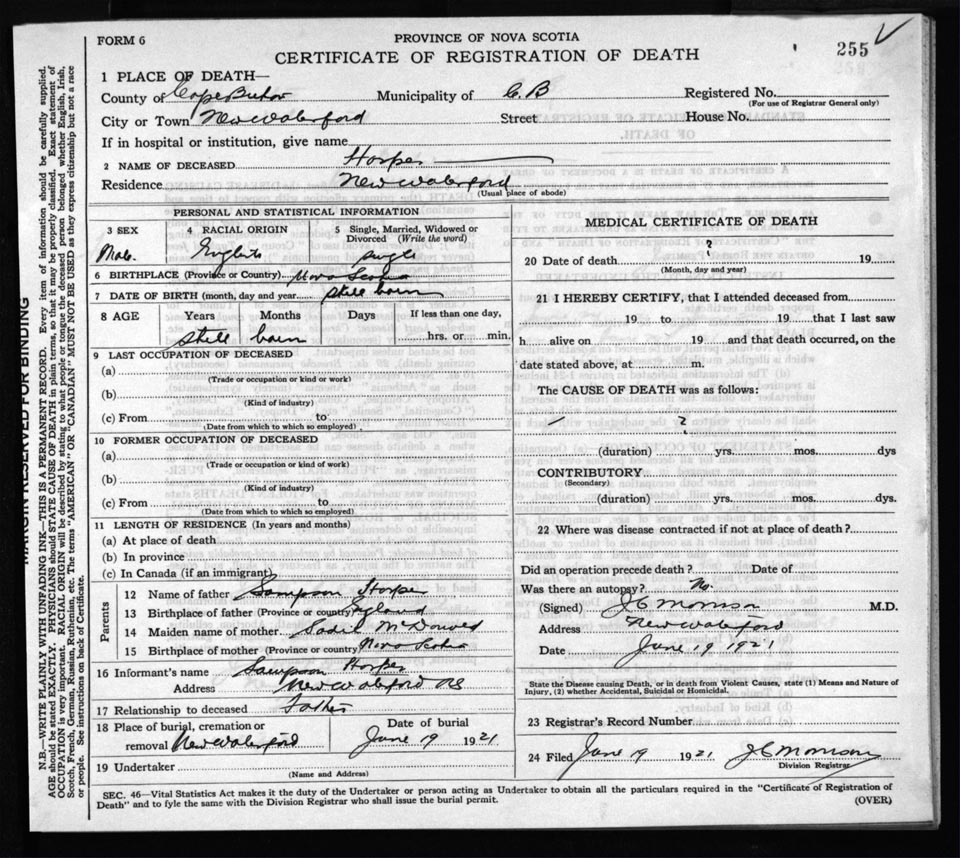 FORM 6
PROVINCE OF NOVA SCOTIA
CERTIFICATE OF REGISTRATION OF DEATH
255
1 PLACE OF DEATH—
County of Municipality of C. B Registered No.
(For use of Registrar General only)
City or Town New Waterford Street House No.
If in hospital or institution, give name
2 NAME OF DECEASED
Residence New Waterford
(Usual place of abode)
PERSONAL AND STATISTICAL INFORMATION
3 SEX 4 RACIAL ORIGIN 5 Single, Married, Widowed or Divorced (Write the word)
Male English Single
6 BIRTHPLACE (Province or Country) Nova Scotia
7 DATE OF BIRTH (month, day and year) Still born
8 AGE Years Months Days If less than one day,
Still born hrs. or min.
9 LAST OCCUPATION OF DECEASED
(a)
(Trade or occupation or kind or work)
(b)
(Kind of industry)
(c) From to
(Date from which to which so employed)
10 FORMER OCCUPATION OF DECEASED
(a)
(Trade or occupation or kind of work)
(b)
(Kind of industry)
(c) From to
(Date from which to which so employed)
11 LENGTH OF RESIDENCE (In years and months)
(a) At place of death
(b) In province
(c) In Canada (if an immigrant)
Parents
12 Name of father Sampson
13 Birthplace of father (Province or country) England
14 Maiden name of mother
15 Birthplace of mother (Province or country) Nova Scotia
16 Informant's name Sampson
Address New Waterford NS
17 Relationship to deceased Father
18 Place of burial, cremation or Date of burial
removal New Waterford June 19 1921
19 Undertaker
(Name and Address)
MEDICAL CERTIFICATE OF DEATH
20 Date of death ? 19
(Month, day and year)
21 I HEREBY CERTIFY, that I attended deceased from
19 to 19 that I last saw
h alive on 19 and that death occurred, on the
date stated above, at m.
The CAUSE OF DEATH was as follows:
(duration) yrs. mos. dys
CONTRIBUTORY
(Secondary)
(duration) yrs. mos. dys.
22 Where was disease contracted if not at place of death?
Did an operation precede death? Date of
Was there an autopsy? No.
(Signed) M.D.
Address New Waterford
Date June 19 1921
State the Disease causing Death, or in death from Violent Causes, state (1) Means and Nature of
Injury, (2) whether Accidental, Suicidal or Homicidal.
23 Registrar's Record Number
24 Filed June 19 1921
Division Registrar
SEC. 46—Vital Statistics Act makes it the duty of the Undertaker or person acting as Undertaker to obtain all the particulars required in the "Certificate of Registration of
Death" and to fyle the same with the Division Registrar who shall issue the burial permit.
(OVER)
MARGIN RESERVED FOR BINDING
N.B.—WRITE PLAINLY WITH UNFADING INK—THIS IS A PERMANENT RECORD. Every item of information should be carefully supplied.
AGE should be stated EXACTLY. PHYSICIANS should STATE CAUSE OF DEATH in plain terms, so that it may be properly classified. Exact statement of
OCCUPATION is very important. RACIAL ORIGIN will be described by stating to what people or tongue the deceased person belonged whether English, Irish,
Scotch, French, German, Russian, Ruthenian, etc. The terms "AMERICAN" OR "CANADIAN" MUST NOT BE USED as they express citizenship but not a race
or people. See instructions on back of Certificate.